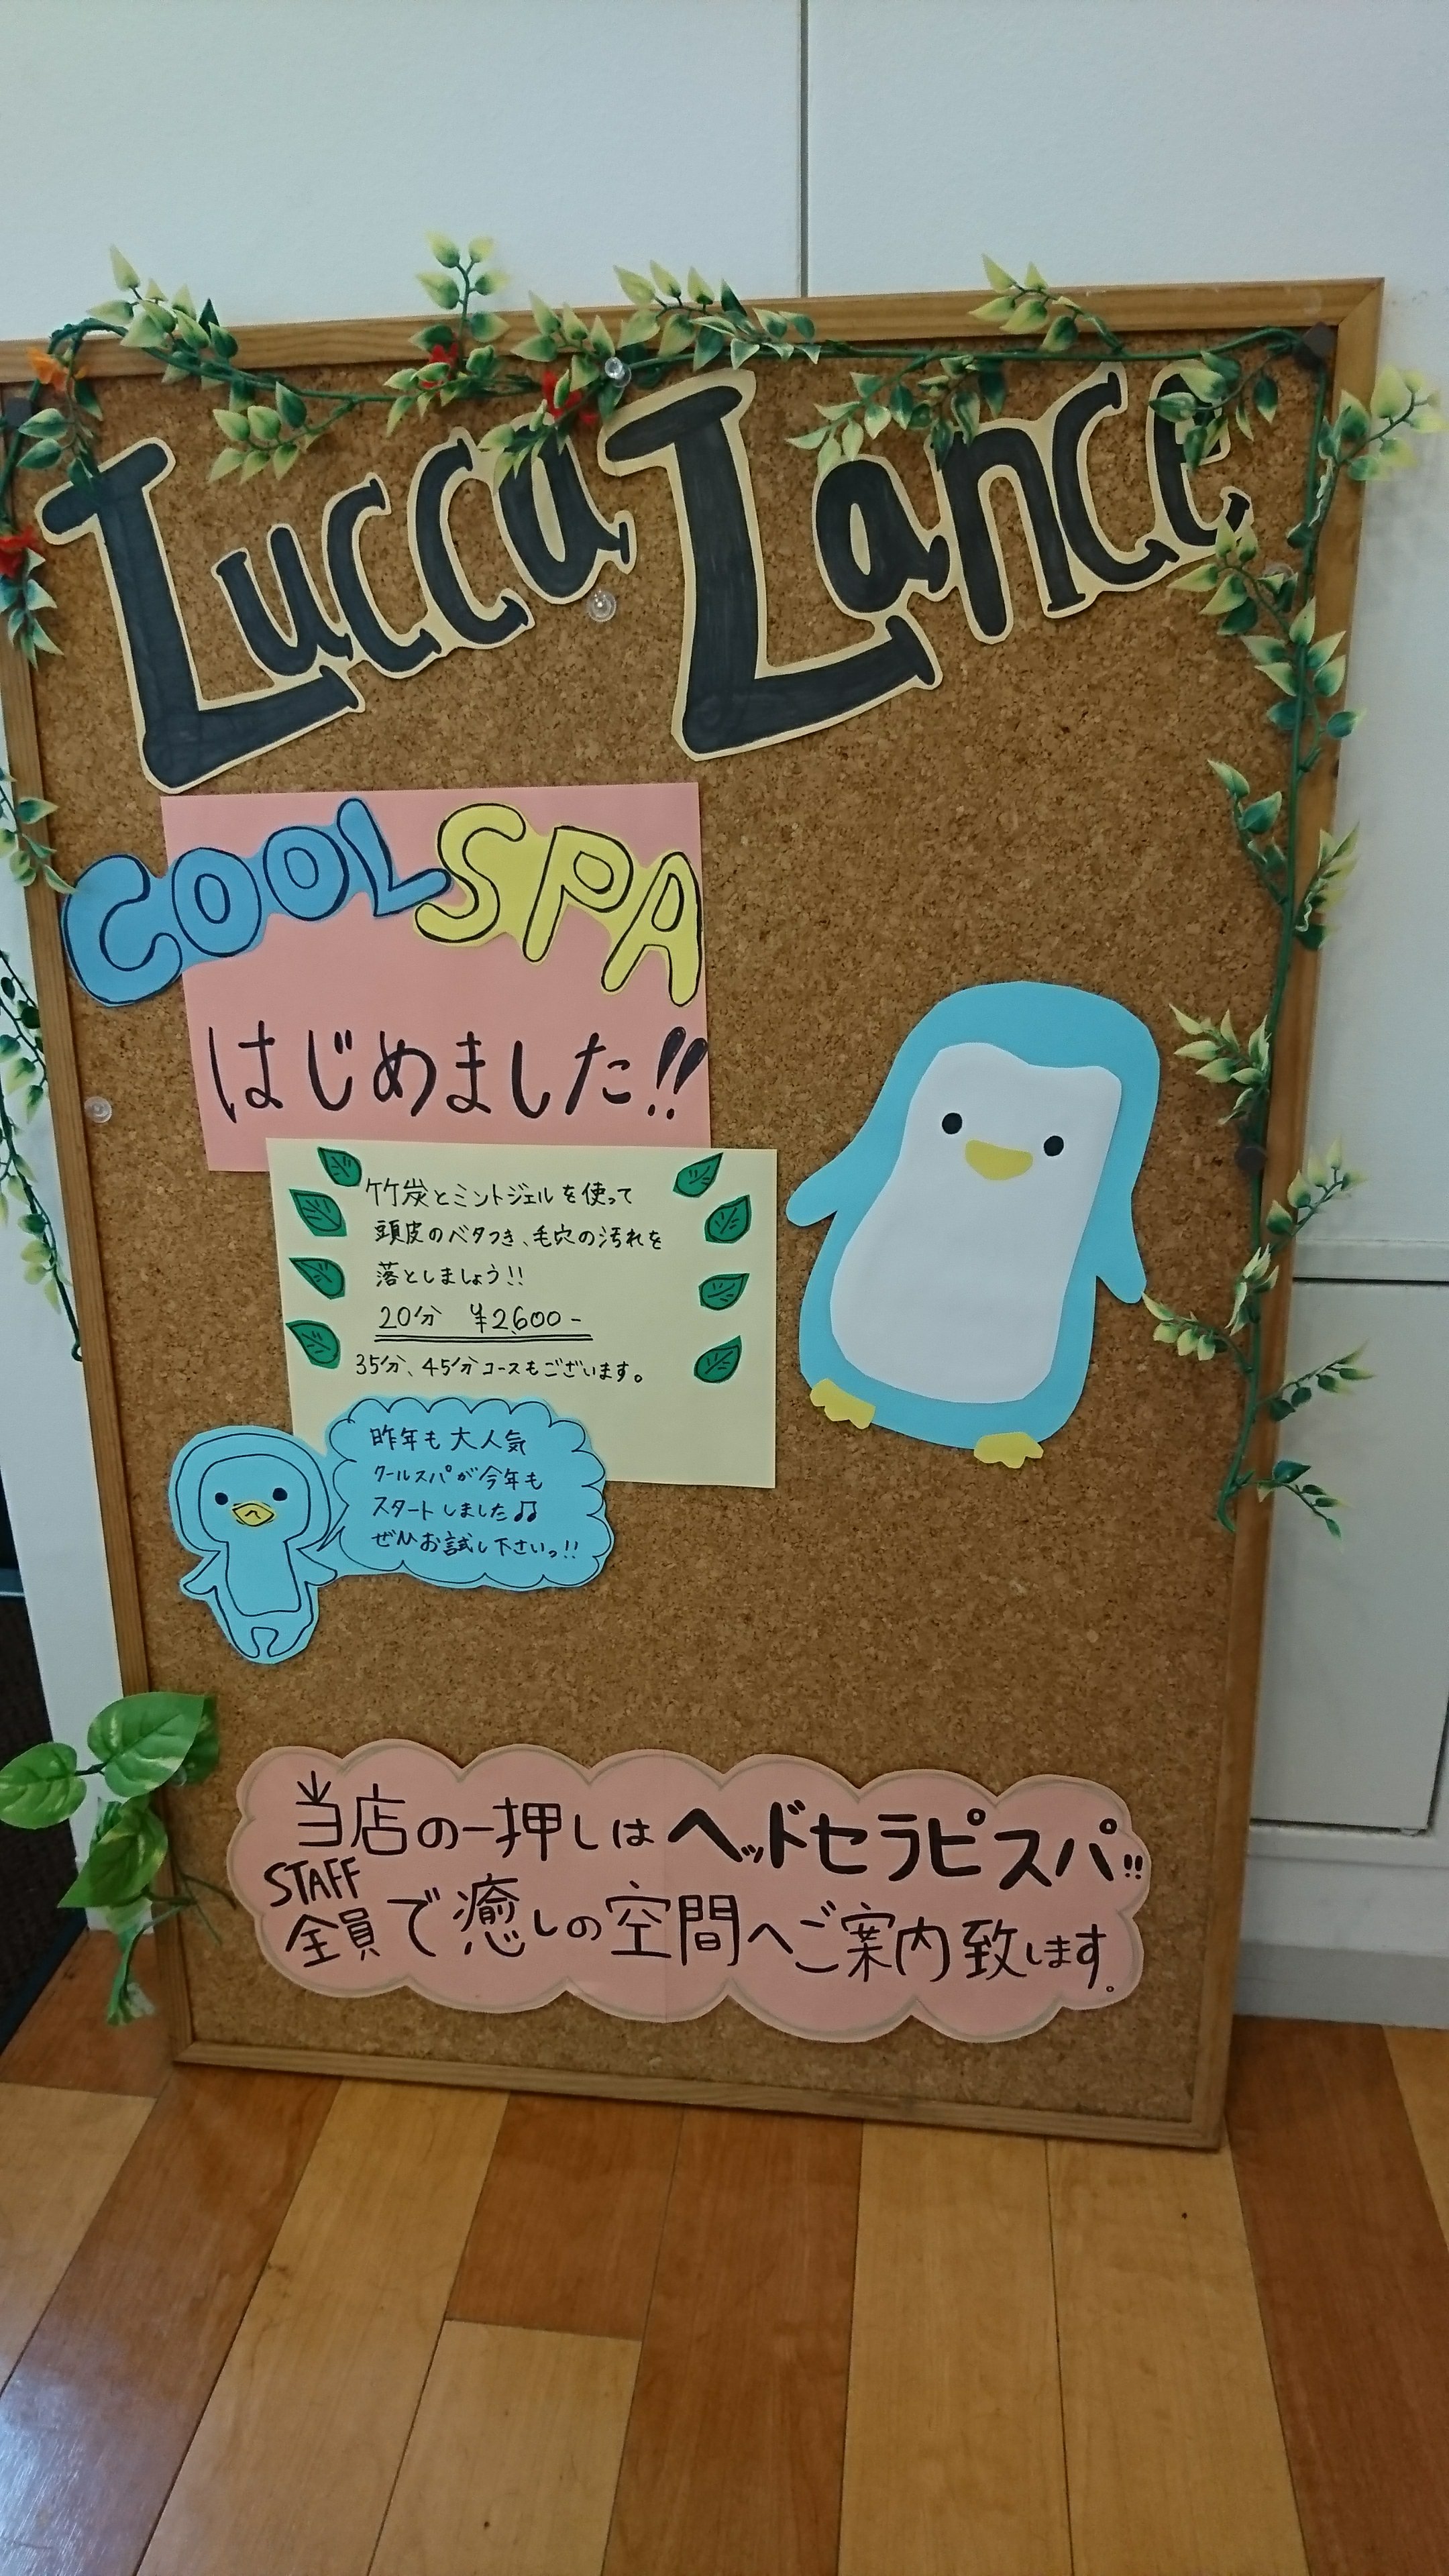 Lucca Lance
COOL SPA
はじめました!!
竹炭とミントジェルを使って
頭皮のベタつき、毛穴の汚れを
落としましょう!!
20分 ¥2,600-
35分、45分コースもございます。
昨年も大人気
クールスパが今年も
スタートしました♫
ぜひお試し下さいっ!!
当店の一押しはヘッドセラピスパ!!
STAFF
全員で癒しの空間へご案内致します。